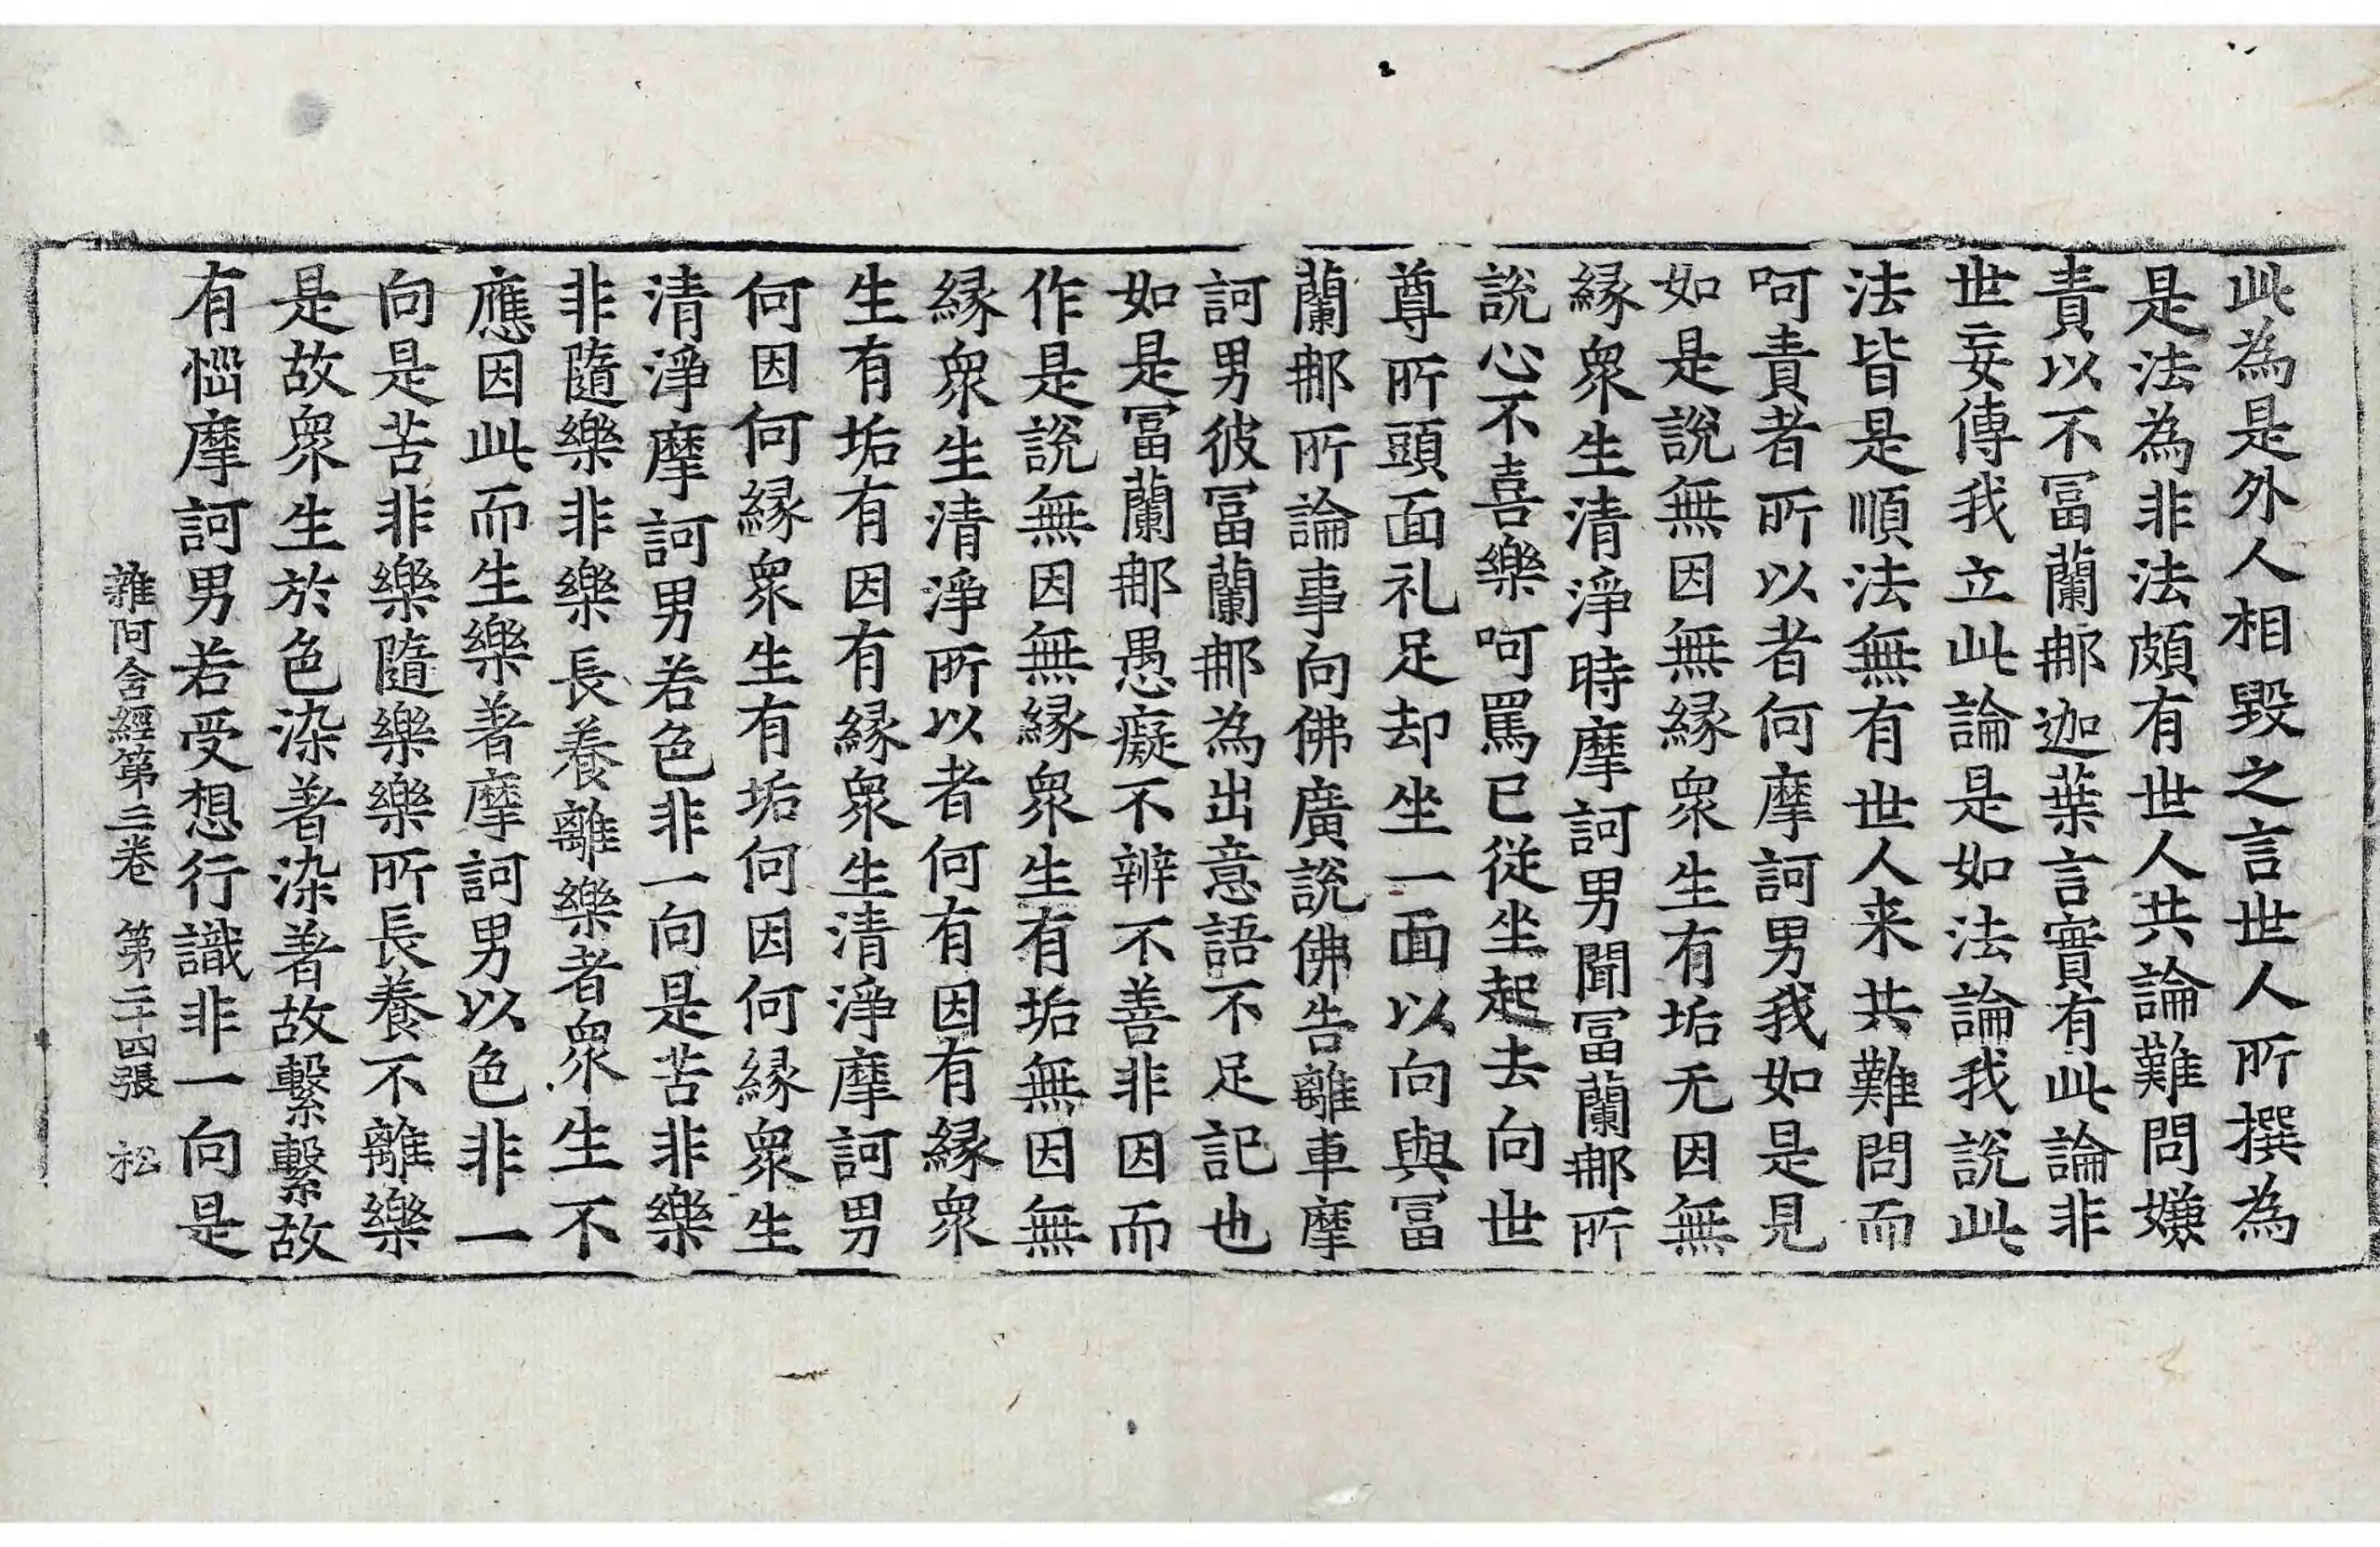 此為是外人相毀之言世人所撰為
是法為非法頗有世人共論難問嫌
責以不冨蘭那迦葉言實有此論非
世妄傳我立此論是如法論我說此
法皆是順法無有世人来共難問而
呵責者所以者何摩訶男我如是見
如是說無因無縁衆生有垢无因無
縁衆生清淨時摩訶男聞冨蘭那所
說心不喜樂呵罵已從坐起去向世
尊所頭面礼足却坐一面以向與冨
蘭那所論事向佛廣說佛告離車摩
訶男彼冨蘭那為出意語不足記也
如是冨蘭那愚癡不辨不善非因而
作是說無因無縁衆生有垢無因無
縁衆生清淨所以者何有因有縁衆
生有垢有因有縁衆生清淨摩訶男
何因何縁衆生有垢何因何縁衆生
清淨摩訶男若色非一向是苦非樂
非隨樂非樂長養離樂者衆生不
應因此而生樂著摩訶男以色非一
向是苦非樂隨樂樂所長養不離樂
是故衆生於色染著染著故繫繫故
有惱摩訶男若受想行識非一向是
雜阿含經第三卷 第二十四張 松